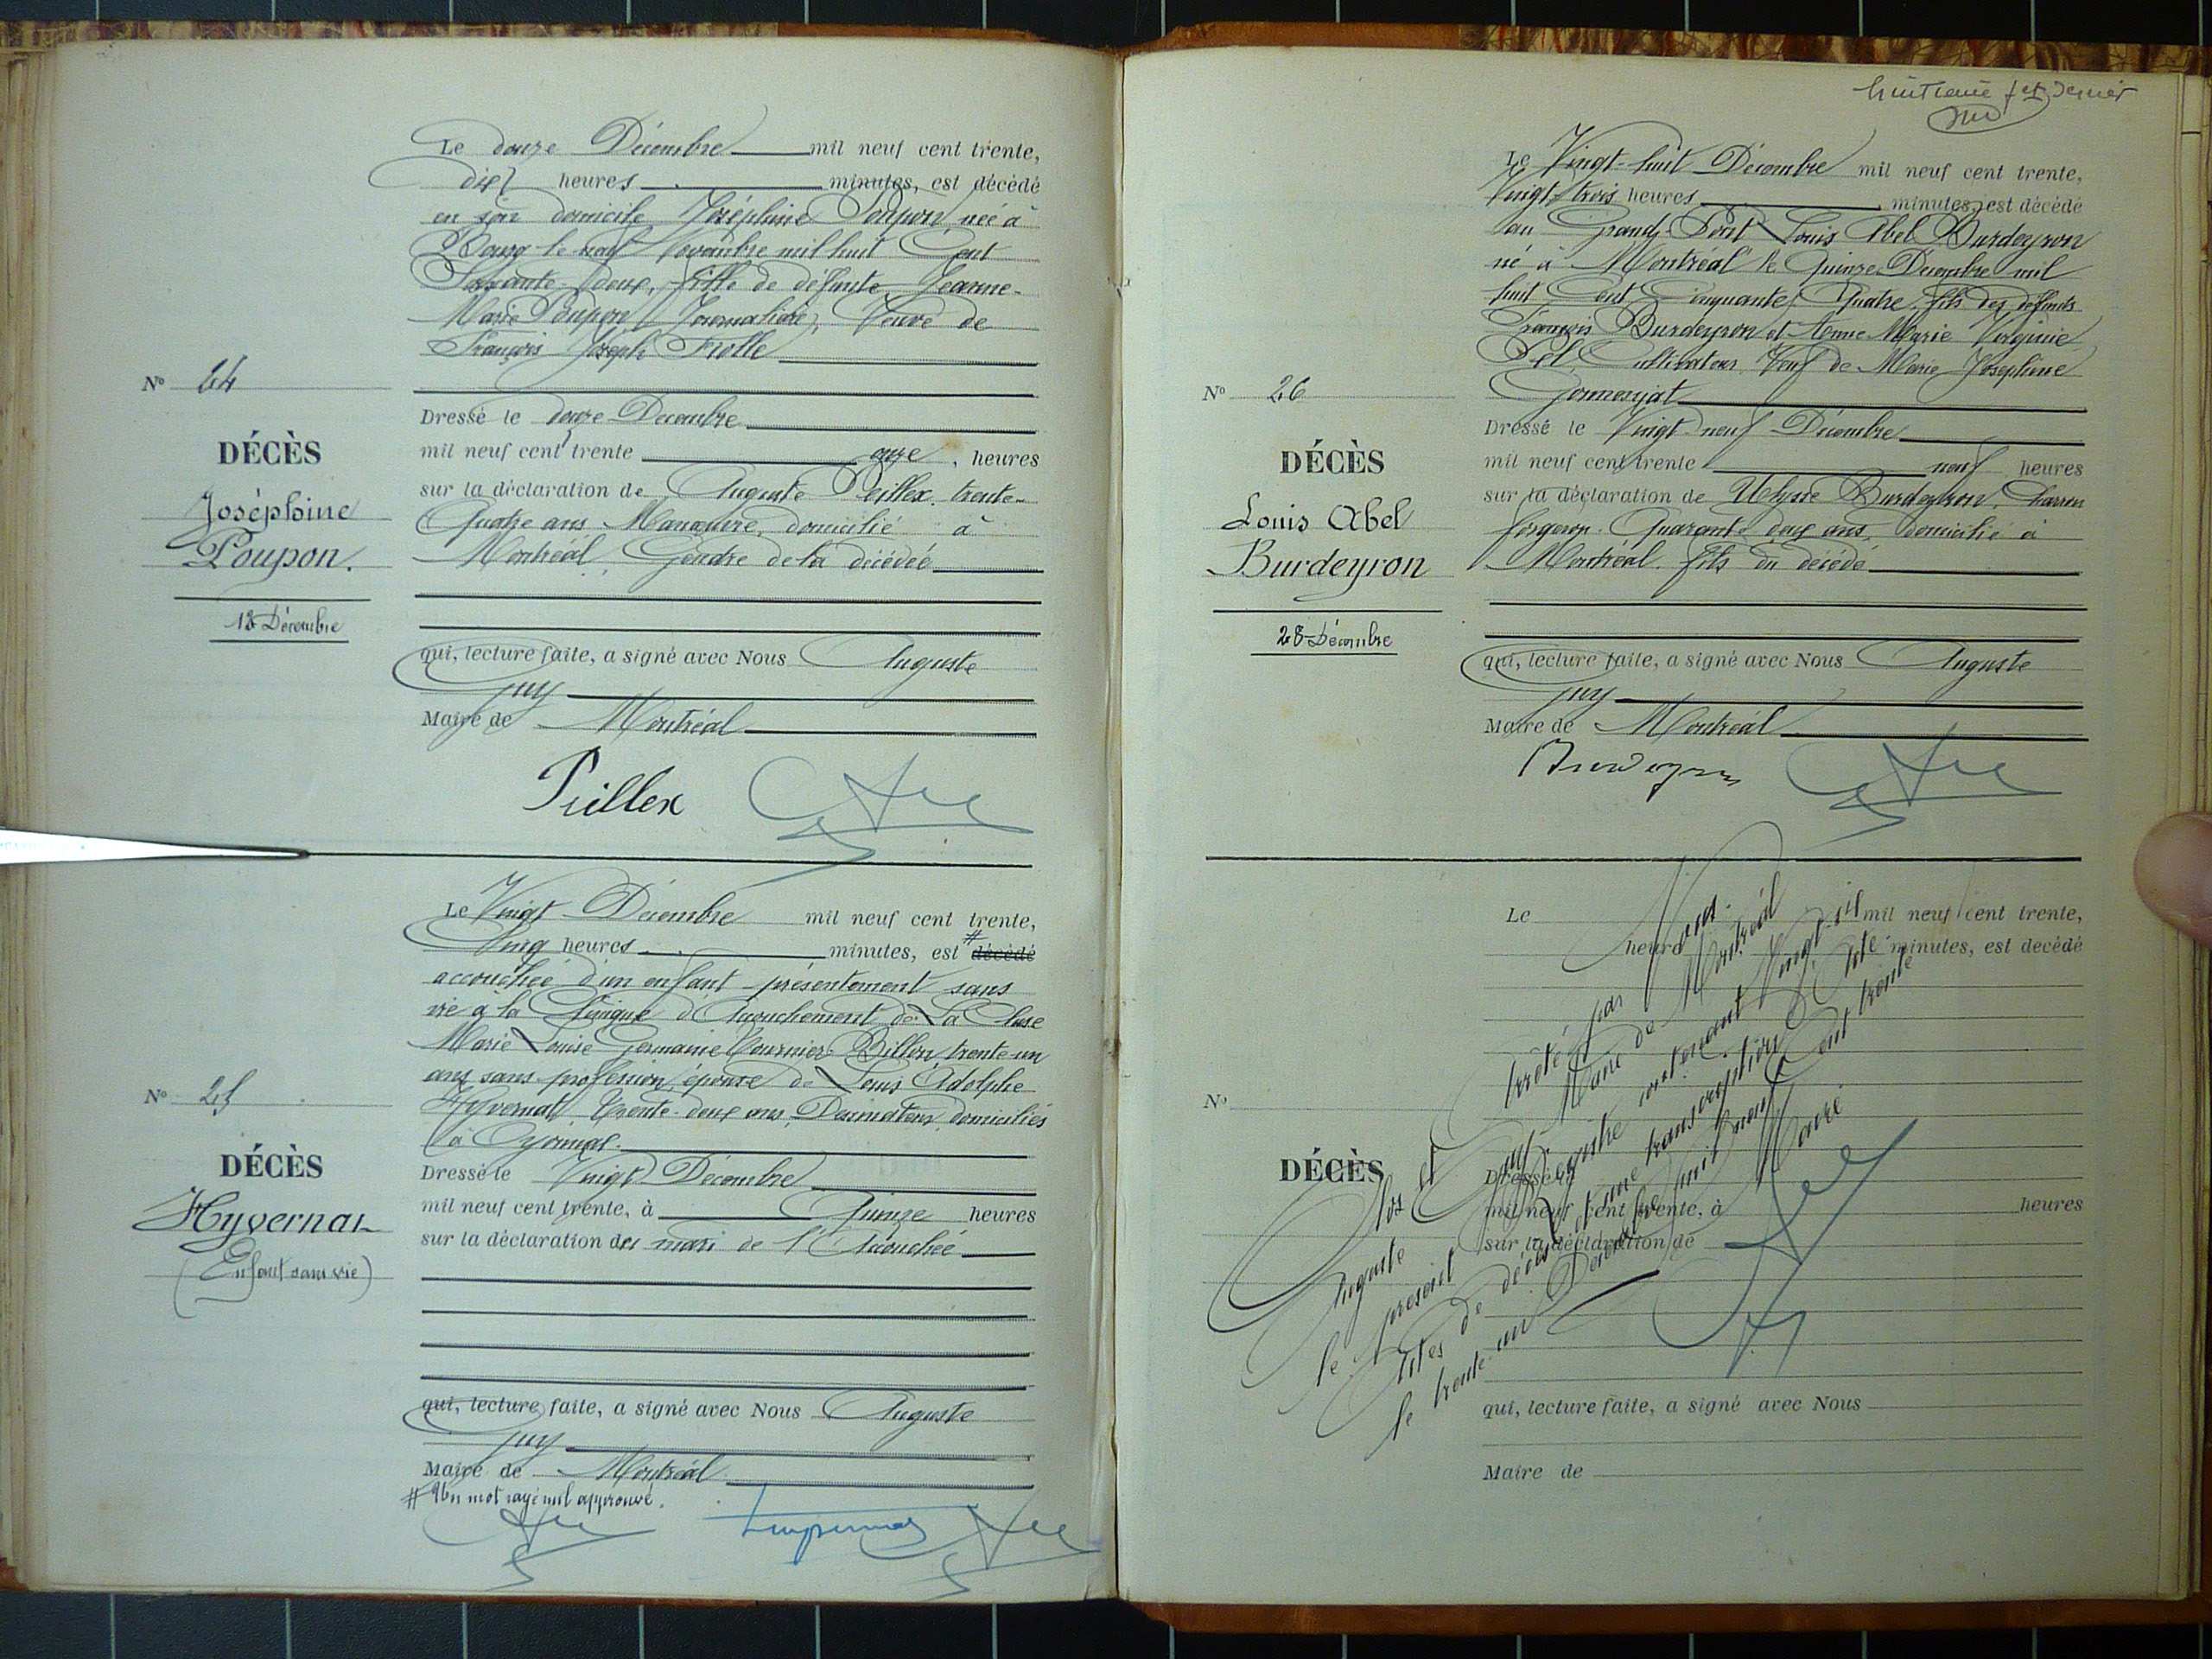 Le douze Décembre mil neuf cent trente,
dix heures minutes, est décédé
en son domicile Joséphine Poupon née à
Bourg le neuf Novembre mil huit Cent
Soixante-deux, fille de défunte Jeanne-
Marie Poupon Journalière, Veuve de
François Joseph Frolle
No 24
DÉCÈS
Joséphine
Poupon.
12 Décembre
Dressé le douze Décembre
mil neuf cent trente onze, heures
sur la déclaration de Auguste Peillex, trente-
Quatre ans Manœuvre, domicilié à
Montréal, Gendre de la décédée
qui, lecture faite, a signé avec Nous Auguste
Juy
Maire de Montréal
Peillex
Le Vingt Décembre mil neuf cent trente,
Cinq heures minutes, est # décédé
accouchée d'un enfant présentement sans
vie à la Clinique d'Accouchement de La Cluse
Marie Louise Germaine Cournier Billon trente-un
ans sans profession, épouse de Louis Adolphe
Hyvernat, trente-deux ans, Décorateur, domiciliés
à Oyonnax.
No 25
DÉCÈS
Hyvernat
(Enfant sans vie)
Dressé le Vingt Décembre
mil neuf cent trente, à Quinze heures
sur la déclaration du mari de l'Accouchée
qui, lecture faite, a signé avec Nous Auguste
Juy
Maire de Montréal
# Un mot rayé nul approuvé.
huitième fet dernier
Le Vingt-huit Décembre mil neuf cent trente,
Vingt-trois heures minutes, est décédé
au Grand Pont Louis Abel Burdeyron
né à Montréal le Quinze Décembre mil
huit Cent Cinquante Quatre, fils des défunts
François Burdeyron et Anne Marie Virginie
Cultivateur, Veuf de Marie Joséphine
No 26
DÉCÈS
Louis Abel
Burdeyron
28 Décembre
Dressé le Vingt neuf Décembre
mil neuf cent trente neuf heures
sur la déclaration de Ulysse Burdeyron, Charron
forgeron. Quarante deux ans, domicilié à
Montréal, fils du décédé
qui, lecture faite, a signé avec Nous Auguste
Juy
Maire de Montréal
Burdeyron
Le mil neuf cent trente,
heures minutes, est décédé
No
DÉCÈS
Dressé le
mil neuf cent trente, à heures
sur la déclaration de
qui, lecture faite, a signé avec Nous
Maire de
Clos et Arrêté par Nous.
Auguste Juy Maire de Montréal
le présent Registre contenant Vingt-six
Actes de décès et une transcription
le trente-un Décembre mil neuf Cent trente
Le Maire